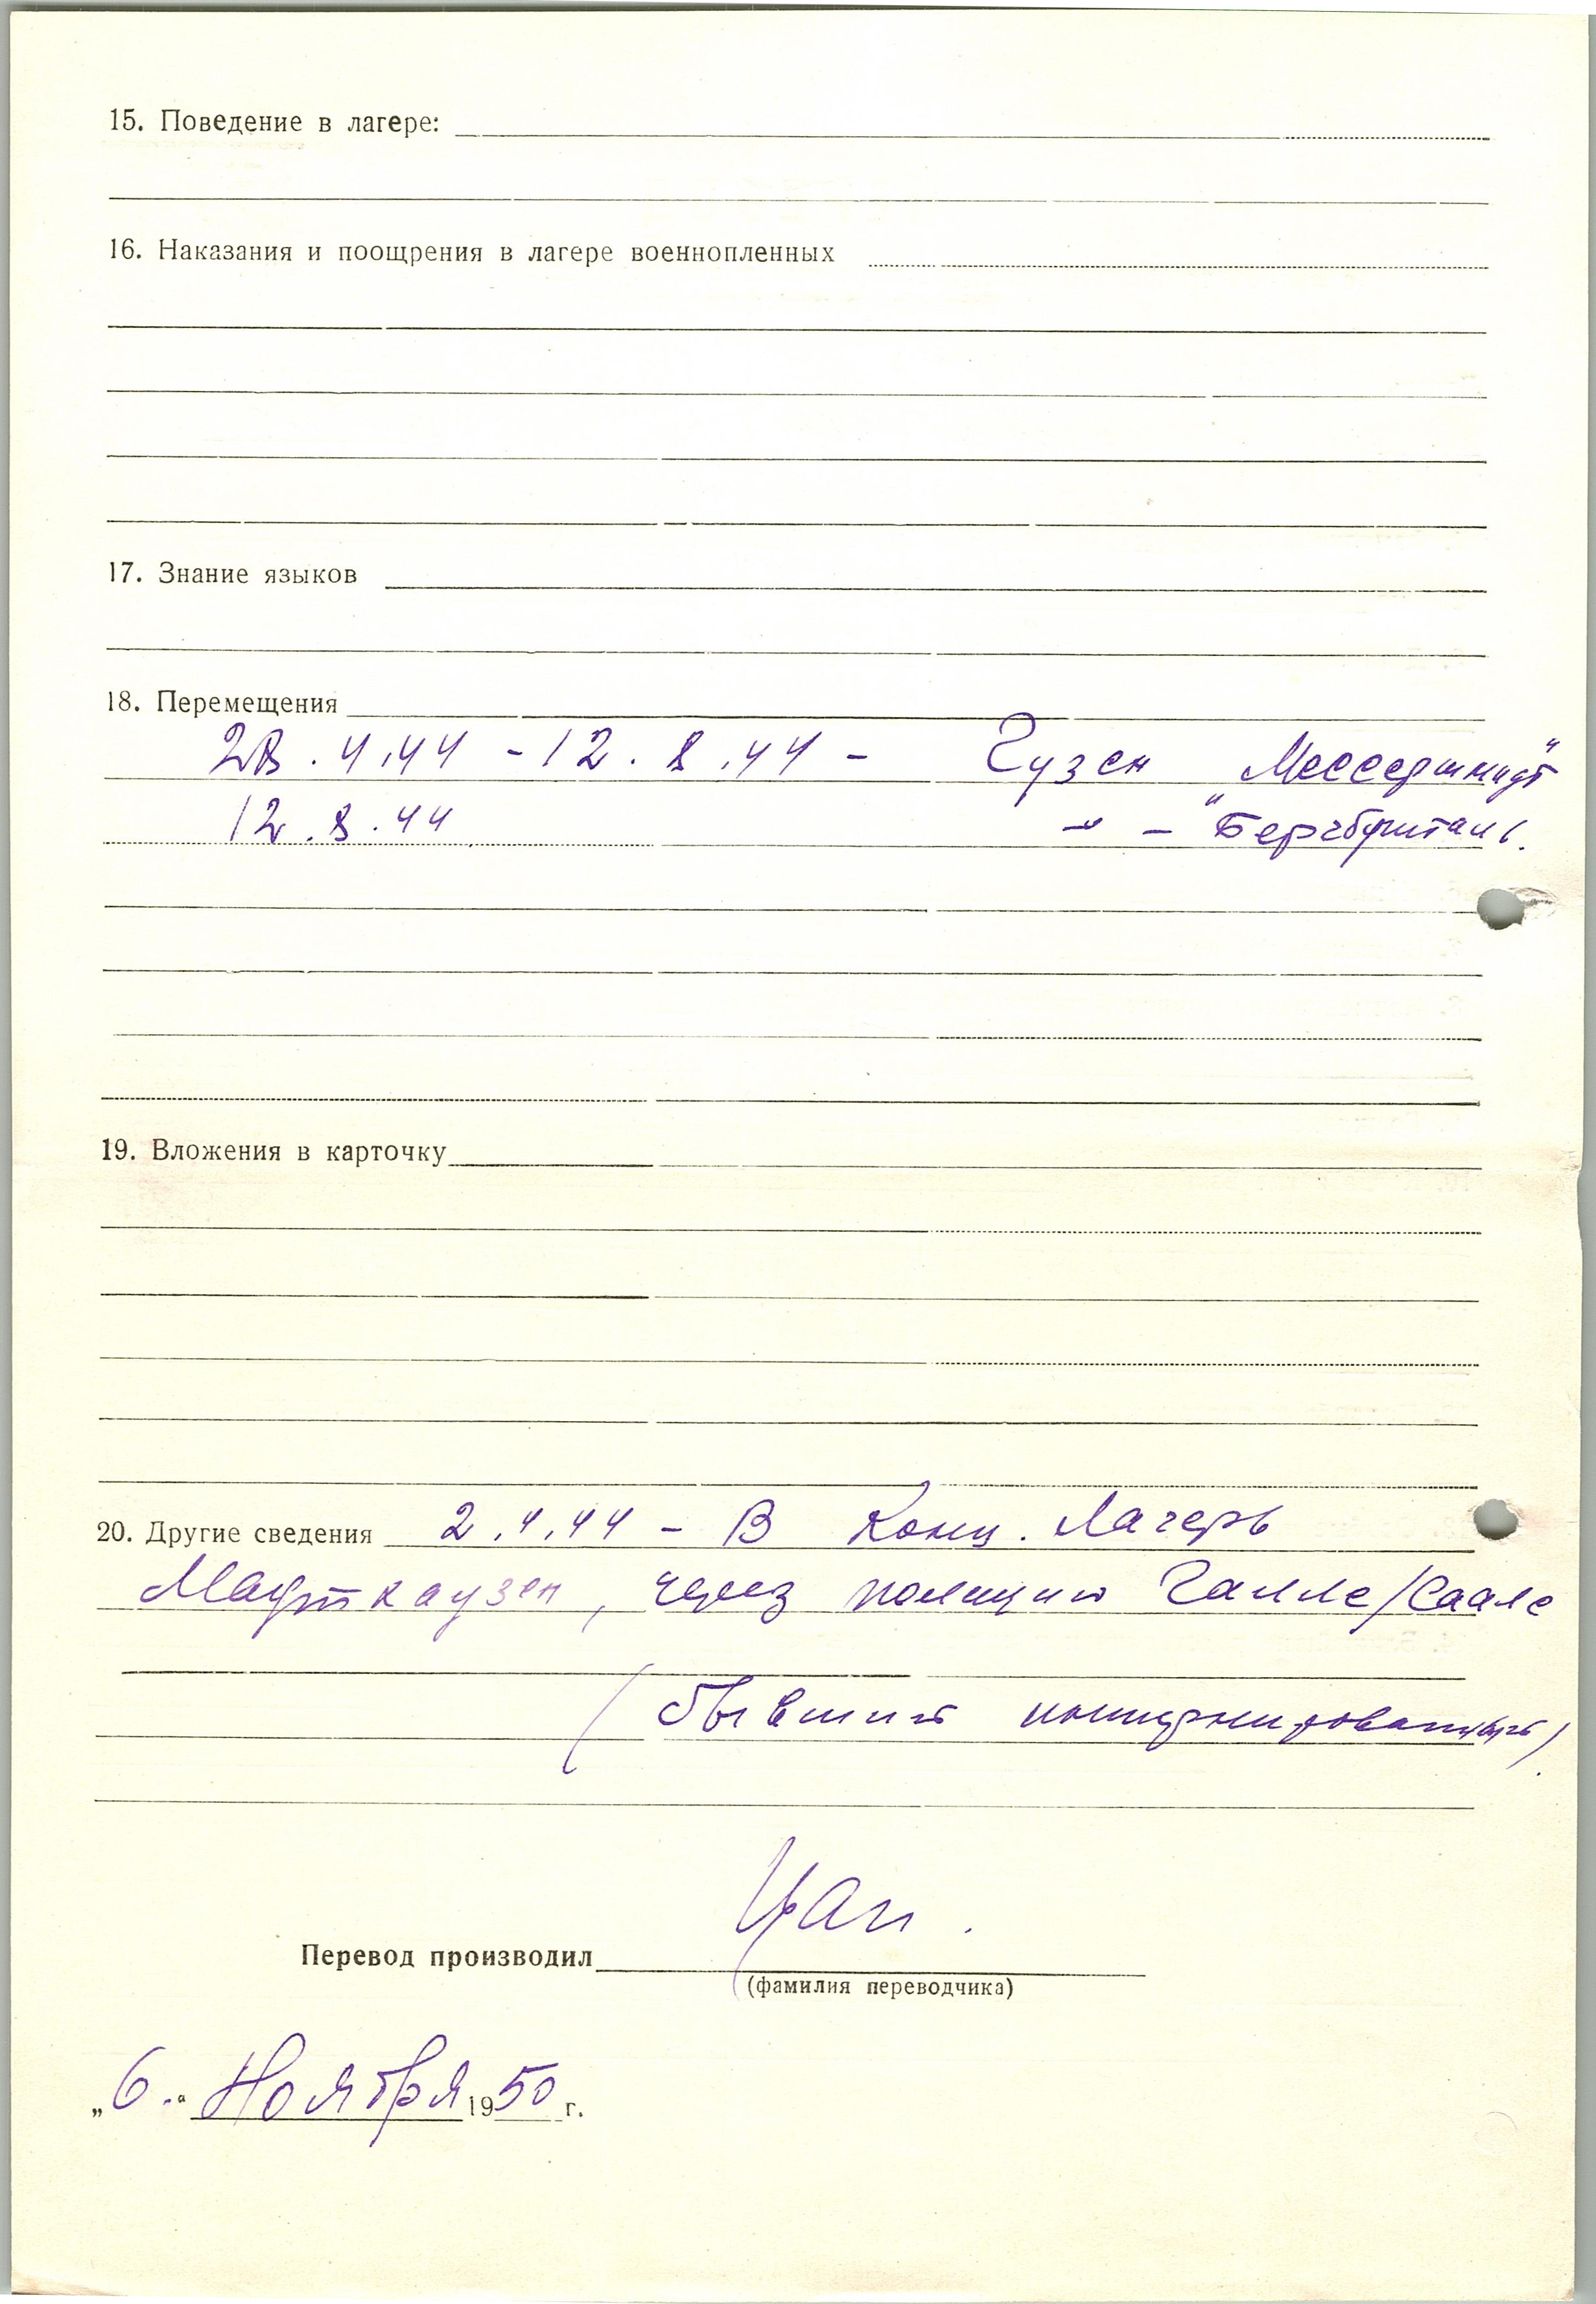 15. Поведение в лагере:
16. Наказания и поощрения в лагере военнопленных
17. Знание языков
18. Перемещения
28.4.44 - 12.8.44 - Гузен "Мессершмидт"
12.8.44 - " - "Бергбушталь.
19. Вложения в карточку
20. Другие сведения 2.4.44 - В Конц. Лагерь
Маутхаузен, через полицию Галле/Саале
(бывший интернированный).
Перевод производил
(фамилия переводчика)
„6." Ноября 1950 г.